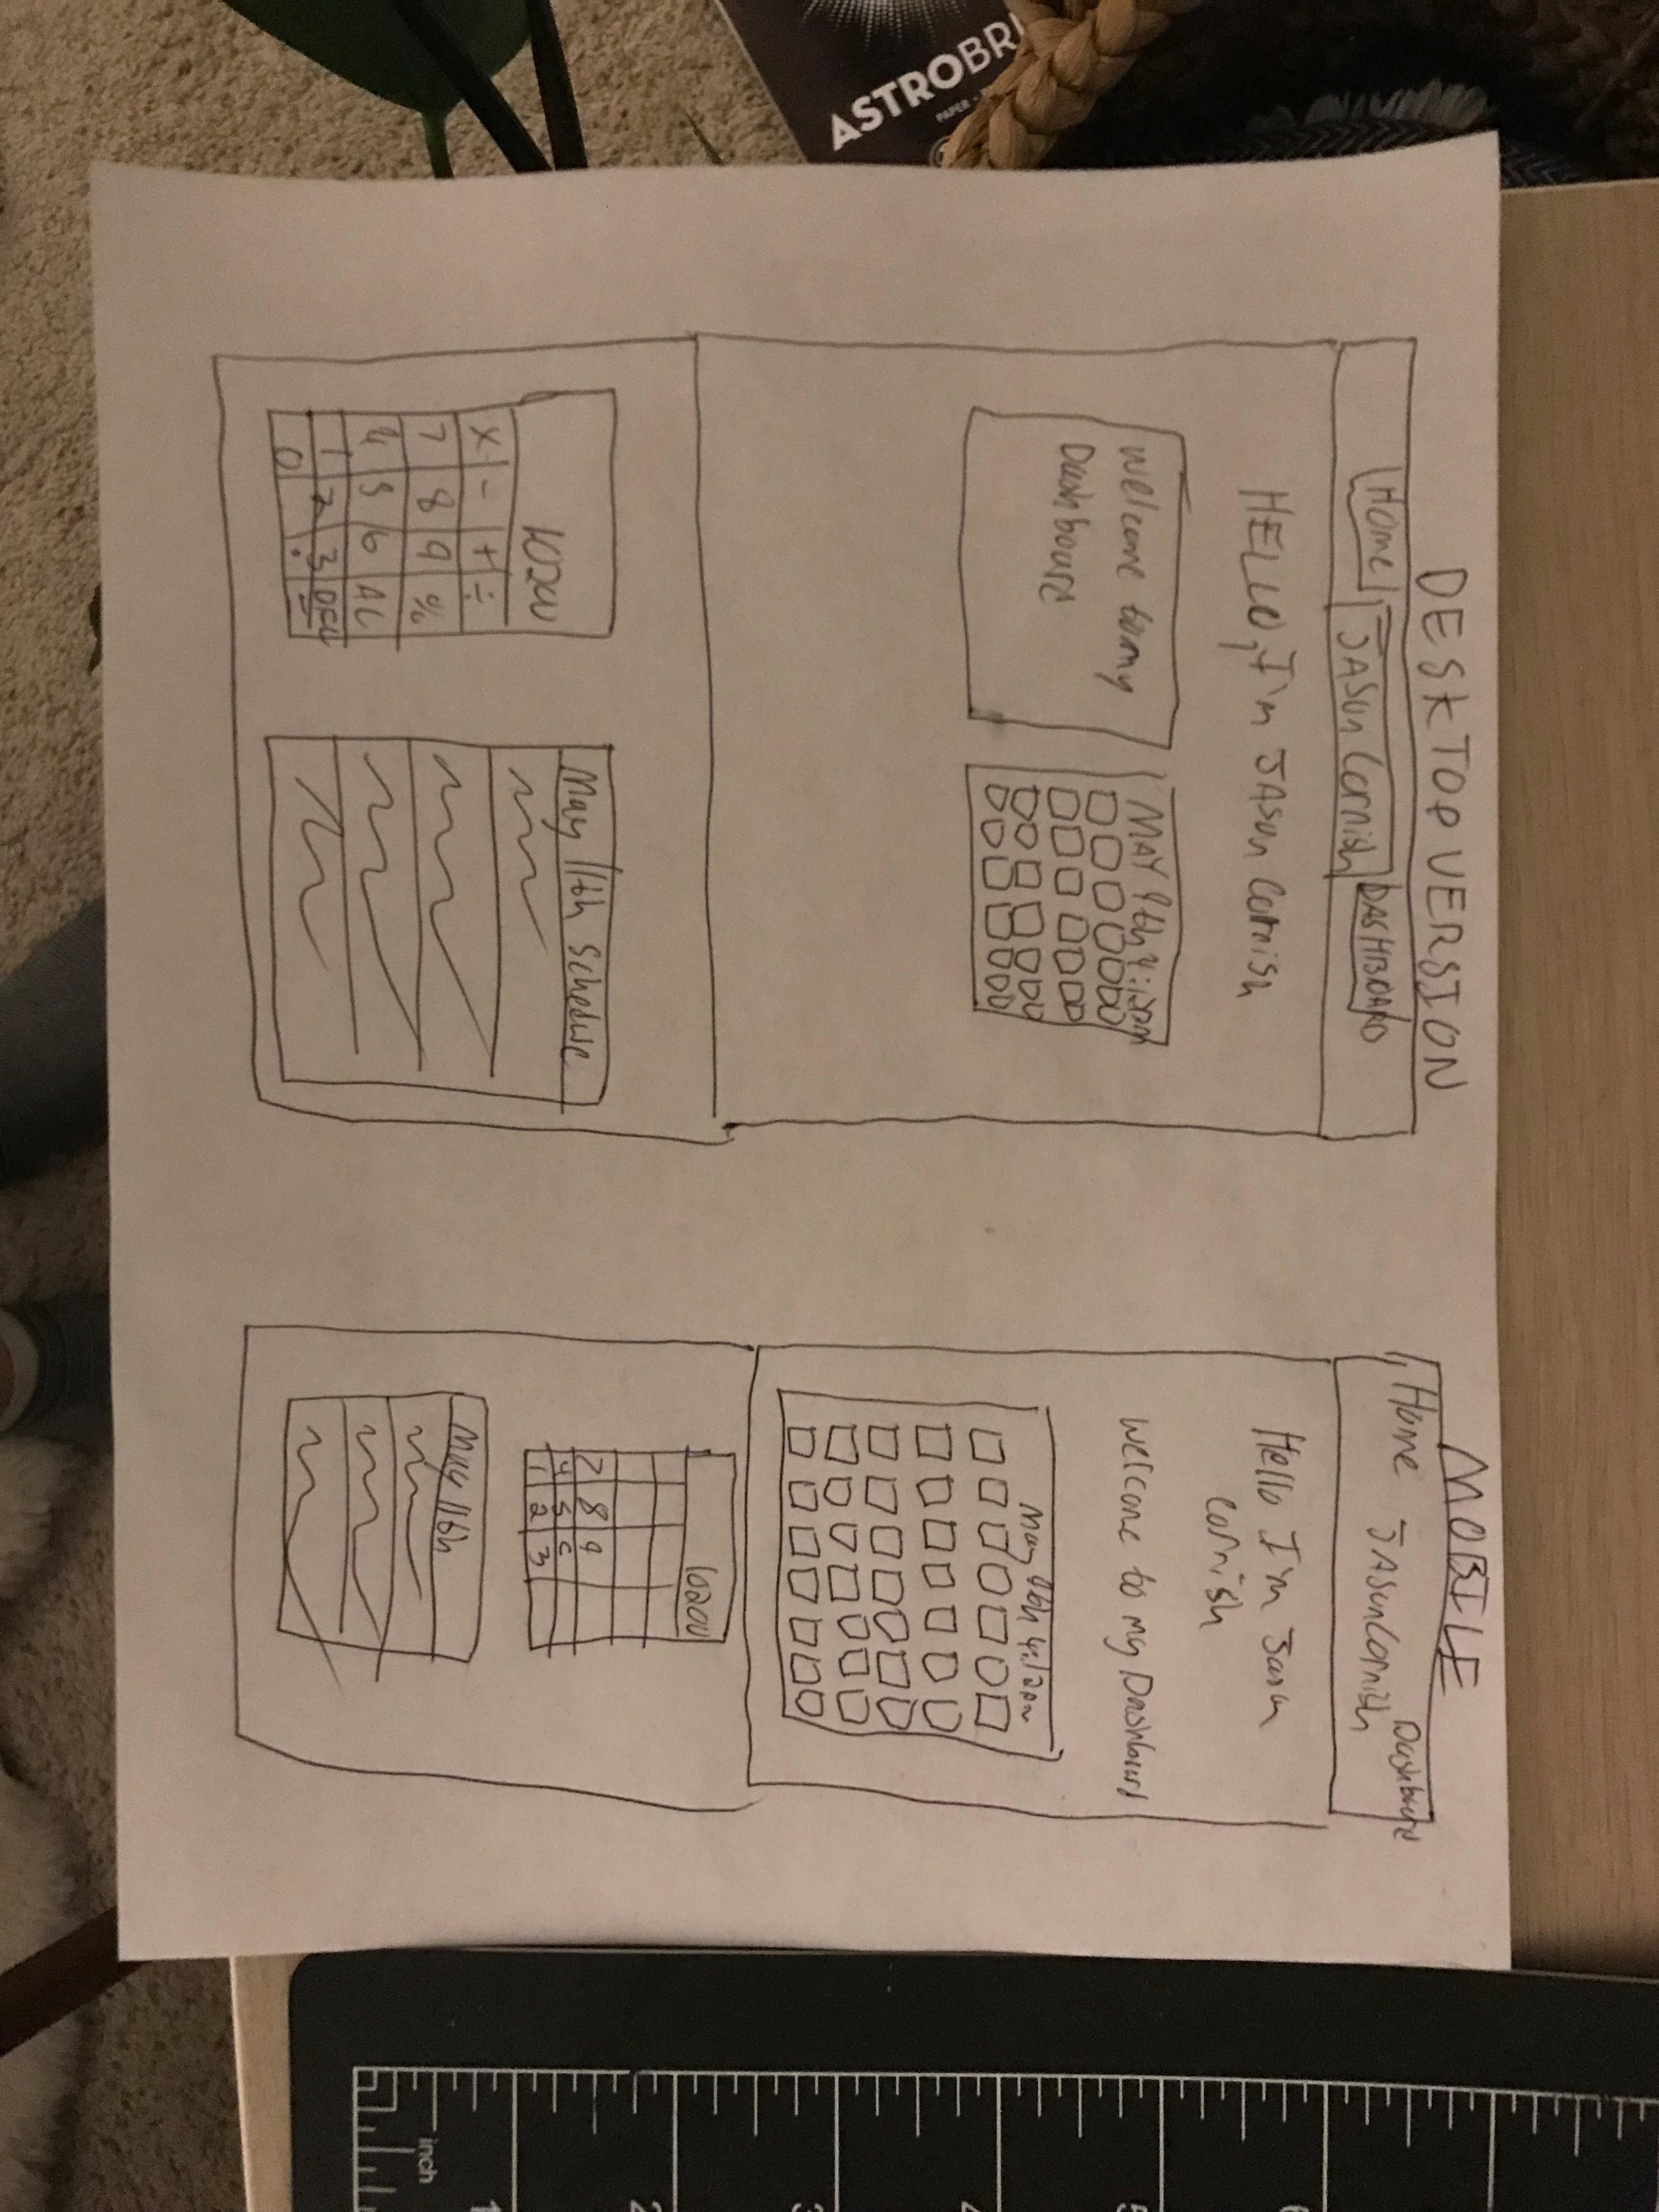 ASTROBRI
PAPER
DESKTOP VERSION
Home
JASON Cornish
DASHBOARD
HELLO, I'm JASON Cornish
Welcome to my
Dashboard
MAY 9th 4:12pm
x - + ÷
7 8 9 %
4 5 6 AC
1 2 3 DEL
0 . =
May 11th Schedule
MOBILE
Home JASON Cornish Dashboard
Hello I'm Jason
Cornish
Welcome to my Dashboard
May 9th 4:12pm
7 8 9
4 5 6
1 2 3
May 11th
inch
1 2 3 4 5 6